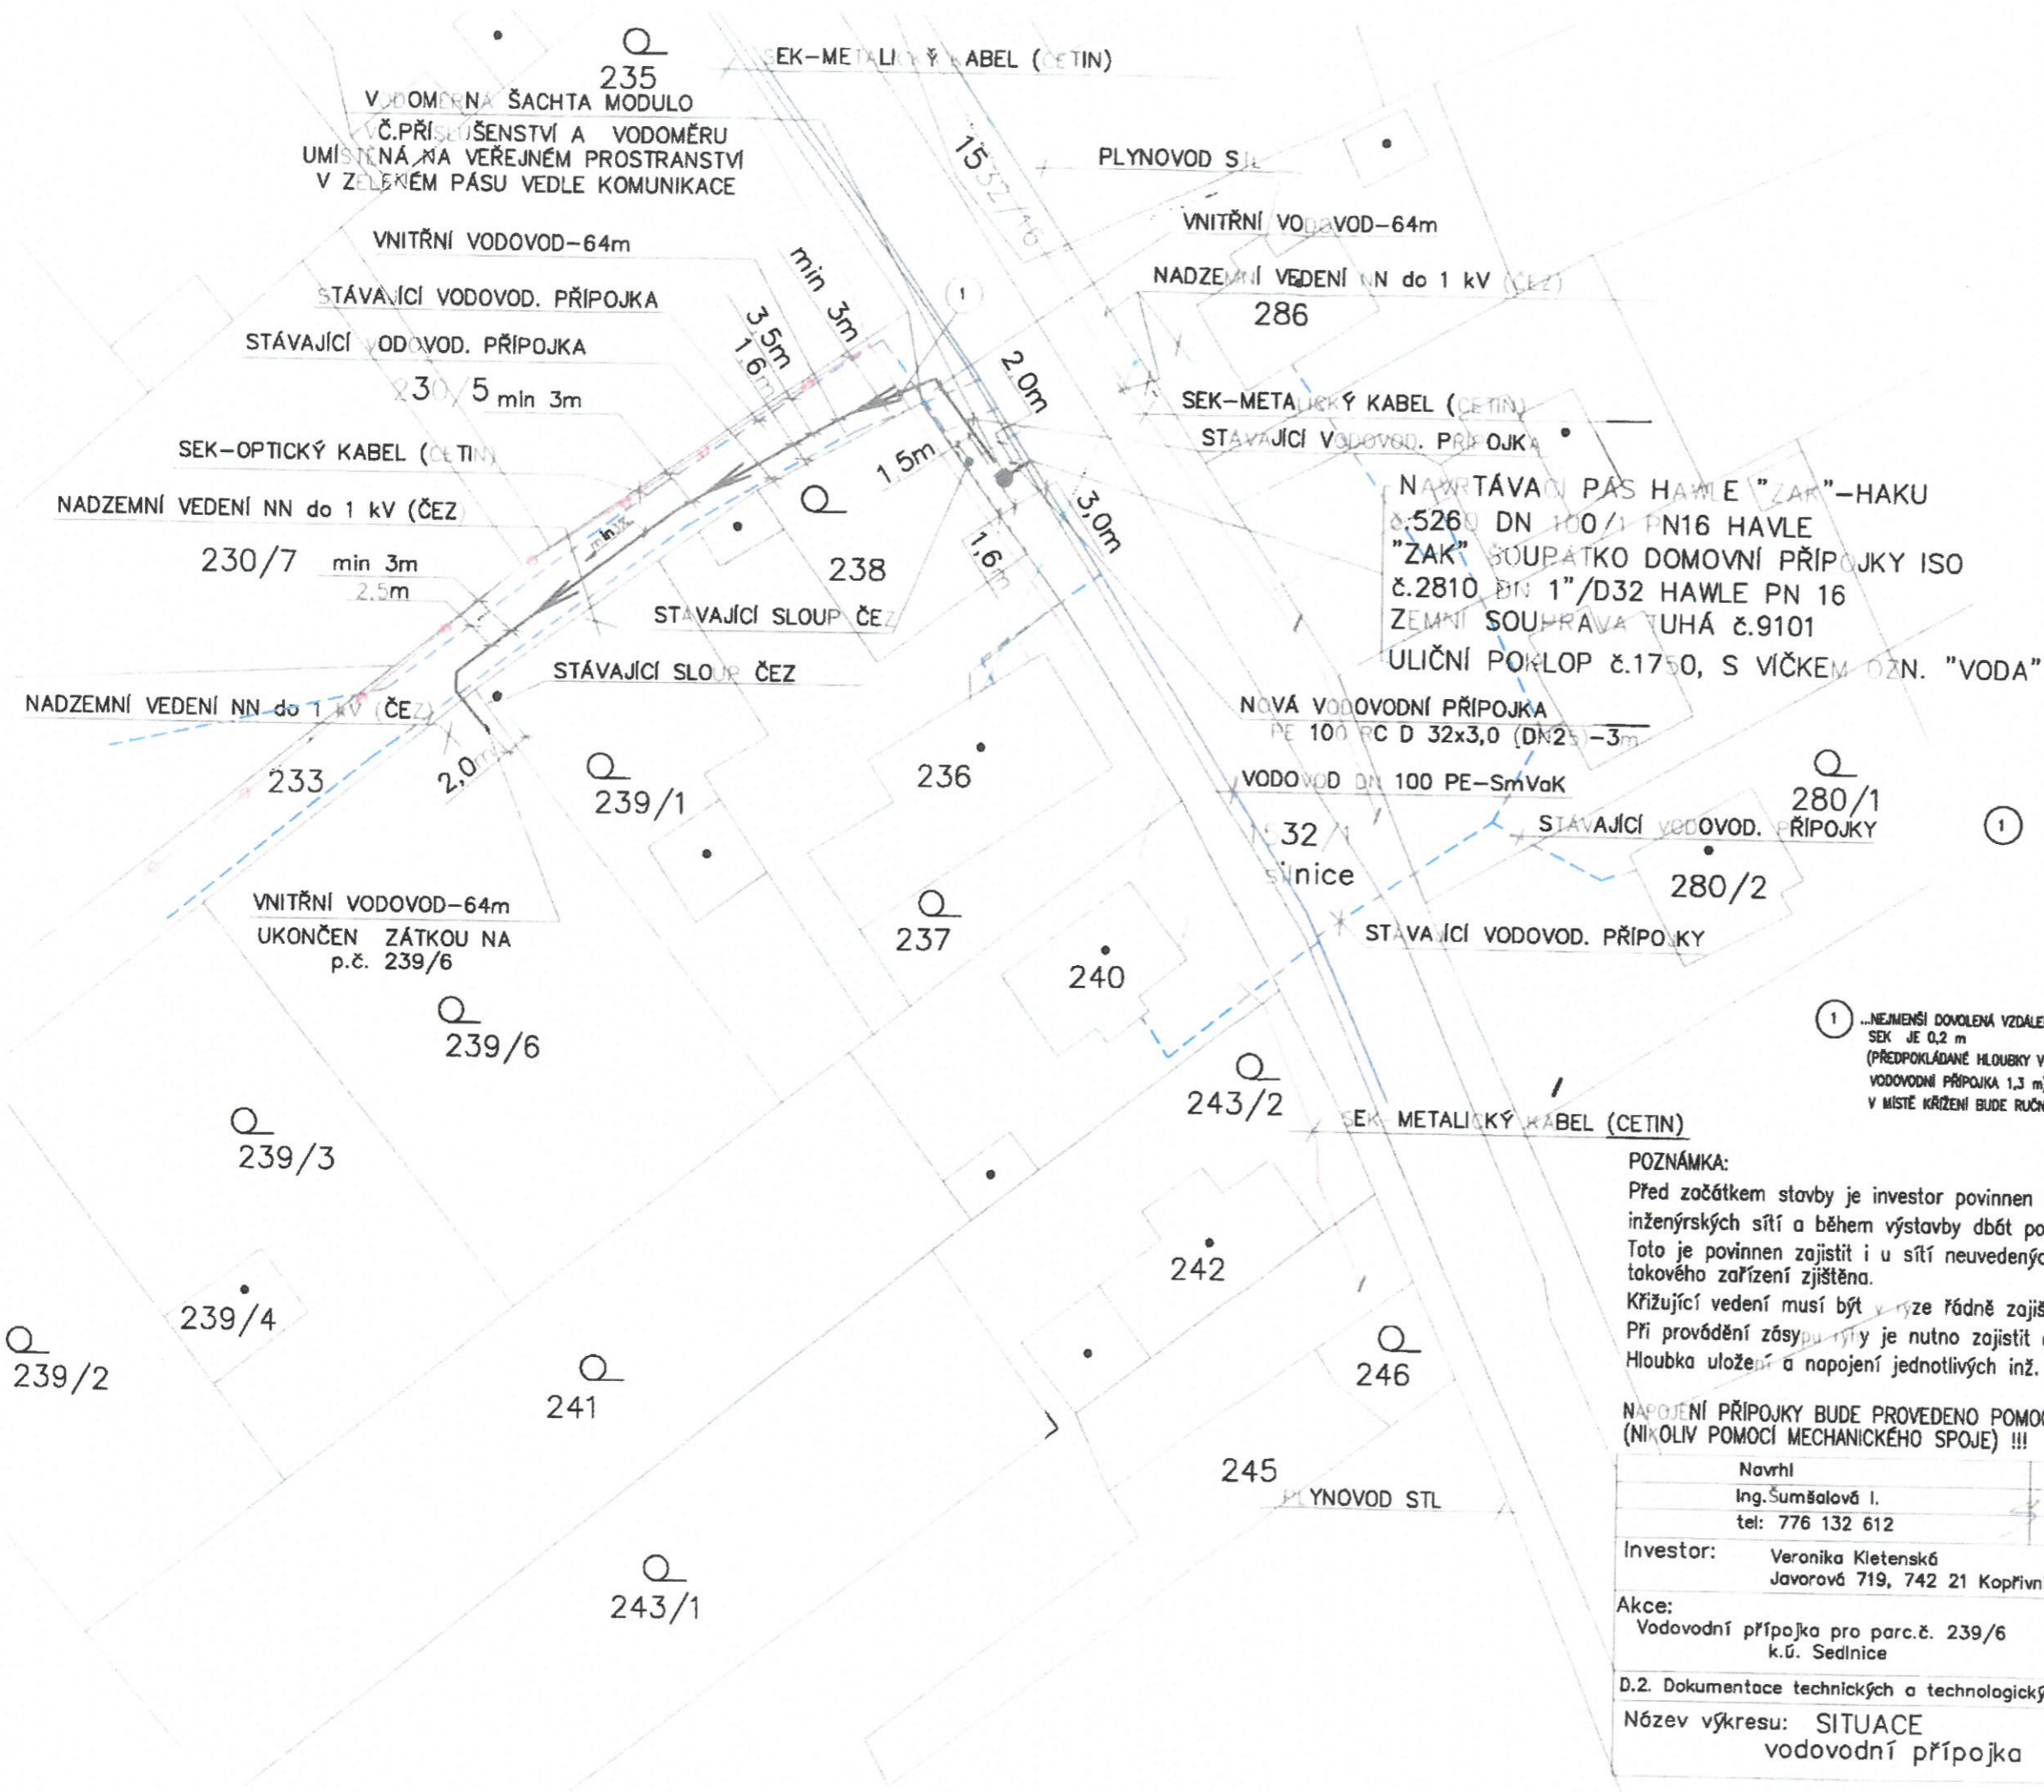 235
SEK-METALICKÝ KABEL (CETIN)
VODOMĚRNÁ ŠACHTA MODULO
VČ.PŘÍSLUŠENSTVÍ A VODOMĚRU
UMÍSTĚNÁ NA VEŘEJNÉM PROSTRANSTVÍ
V ZELENÉM PÁSU VEDLE KOMUNIKACE
1532/16
PLYNOVOD STL
VNITŘNÍ VODOVOD-64m
VNITŘNÍ VODOVOD-64m
min 3m
NADZEMNÍ VEDENÍ NN do 1 kV (ČEZ)
286
STÁVAJÍCÍ VODOVOD. PŘÍPOJKA
1
3,5m
1,6m
STÁVAJÍCÍ VODOVOD. PŘÍPOJKA
2,0m
230/5 min 3m
SEK-METALICKÝ KABEL (CETIN)
STÁVAJÍCÍ VODOVOD. PŘÍPOJKA
SEK-OPTICKÝ KABEL (CETIN)
1,5m
NADZEMNÍ VEDENÍ NN do 1 kV (ČEZ
3,0m
NAVRTÁVACÍ PÁS HAWLE "ZAK"-HAKU
č.5260 DN 100/1 PN16 HAVLE
"ZAK" ŠOUPÁTKO DOMOVNÍ PŘÍPOJKY ISO
č.2810 DN 1"/D32 HAWLE PN 16
ZEMNÍ SOUPRAVA TUHÁ č.9101
ULIČNÍ POKLOP č.1750, S VÍČKEM OZN. "VODA"
230/7 min 3m
2,5m
238
1,6m
STÁVAJÍCÍ SLOUP ČEZ
STÁVAJÍCÍ SLOUP ČEZ
NADZEMNÍ VEDENÍ NN do 1 kV (ČEZ)
NOVÁ VODOVODNÍ PŘÍPOJKA
PE 100 RC D 32x3,0 (DN25)-3m
233
2,0m
239/1
236
VODOVOD DN 100 PE-SmVaK
280/1
1532/1
silnice
STÁVAJÍCÍ VODOVOD. PŘÍPOJKY
1
280/2
VNITŘNÍ VODOVOD-64m
UKONČEN ZÁTKOU NA
p.č. 239/6
237
STÁVAJÍCÍ VODOVOD. PŘÍPOJKY
240
239/6
1 ...NEJMENŠÍ DOVOLENÁ
SEK JE 0,2 m
(PŘEDPOKLÁDANÉ HLOUBKY
VODOVODNÍ PŘÍPOJKA 1,3 m
V MÍSTĚ KŘÍŽENÍ BUDE
243/2
SEK METALICKÝ KABEL (CETIN)
239/3
POZNÁMKA:
Před začátkem stavby je investor povinen
inženýrských sítí a během výstavby dbát
Toto je povinnen zajistit i u sítí
takového zařízení zjištěna.
Křižující vedení musí být v rýze řádně
Při provádění zásypu rýhy je nutno zajistit
Hloubka uložení a napojení jednotlivých inž.
242
239/4
239/2
241
246
NAPOJENÍ PŘÍPOJKY BUDE PROVEDENO
(NIKOLIV POMOCÍ MECHANICKÉHO SPOJE) !!!
245
PLYNOVOD STL
Navrhl
Ing.Šumšalová I.
tel: 776 132 612
243/1
Investor: Veronika Kletenská
Javorová 719, 742 21
Akce:
Vodovodní přípojka pro parc.č. 239/6
k.ú. Sedlnice
D.2. Dokumentace technických a
Název výkresu: SITUACE
vodovodní přípojka